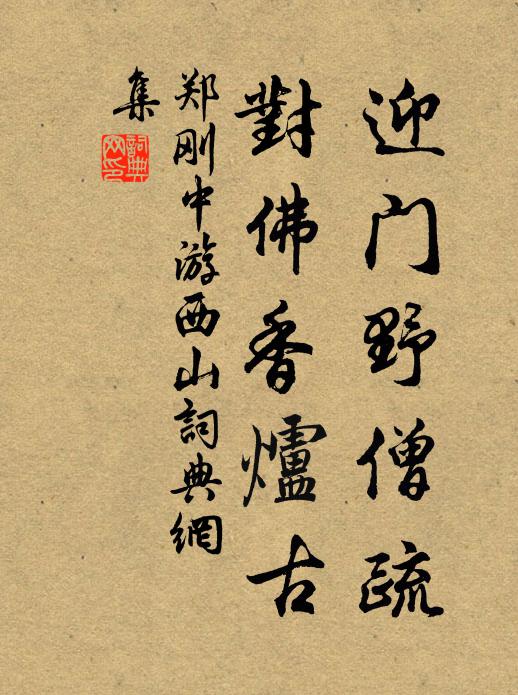 迎门野僧疏
對佛香爐古
郑刚中游西山詞典網
集
詞典网印